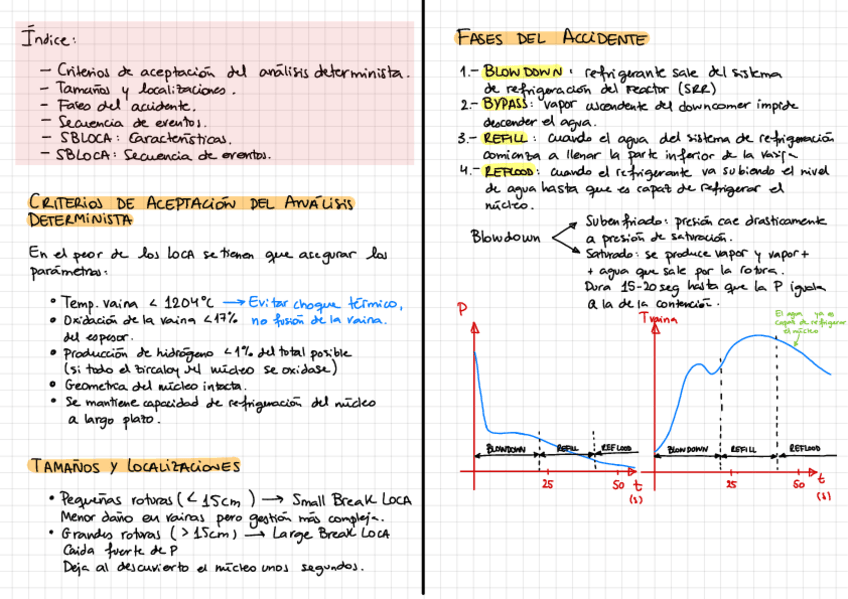 Índice:
- Criterios de aceptación del análisis determinista.
- Tamaños y localizaciones.
- Fases del accidente.
- Secuencia de eventos.
- SBLOCA: Características.
- SBLOCA: Secuencia de eventos.
CRITERIOS DE ACEPTACIÓN DEL ANÁLISIS
DETERMINISTA
En el peor de los LOCA se tienen que asegurar los
parámetros:
• Temp. vaina < 1204°C → Evitar choque térmico,
• Oxidación de la vaina <17% no fusión de la vaina.
del espesor.
• Producción de hidrógeno <1% del total posible
(si todo el zircaloy del núcleo se oxidase)
• Geometría del núcleo intacta.
• Se mantiene capacidad de refrigeración del núcleo
a largo plazo.
TAMAÑOS Y LOCALIZACIONES
• Pequeñas roturas (< 15cm) → Small Break LOCA
Menor daño en vainas pero gestión más compleja.
• Grandes roturas (> 15cm) → Large Break LOCA
Caida fuerte de P
Deja al descuvierto el núcleo unos segundos.
FASES DEL ACCIDENTE
1.- BLOWDOWN: refrigerante sale del sistema
de refrigeración del reactor (SRR)
2.- BYPASS: vapor ascendente del downcomer impide
descender el agua.
3.- REFILL: cuando el agua del sistema de refrigeración
comienza a llenar la parte inferior de la vasija
4.- REFLOOD: cuando el refrigerante va subiendo el nivel
de agua hasta que es capaz de refrigerar el
núcleo.
Blowdown
Subenfriado: presión cae drasticamente
a presión de saturación.
Saturado: se produce vapor y vapor+
+ agua que sale por la rotura.
Dura 15-20 seg hasta que la P iguala
a la de la contención.
P
BLOWDOWN REFILL REFLOOD
25 50 t
(s)
Tvaina
El agua ya es
capaz de refrigerar
el núcleo
BLOWDOWN REFILL REFLOOD
25 50 t
(s)